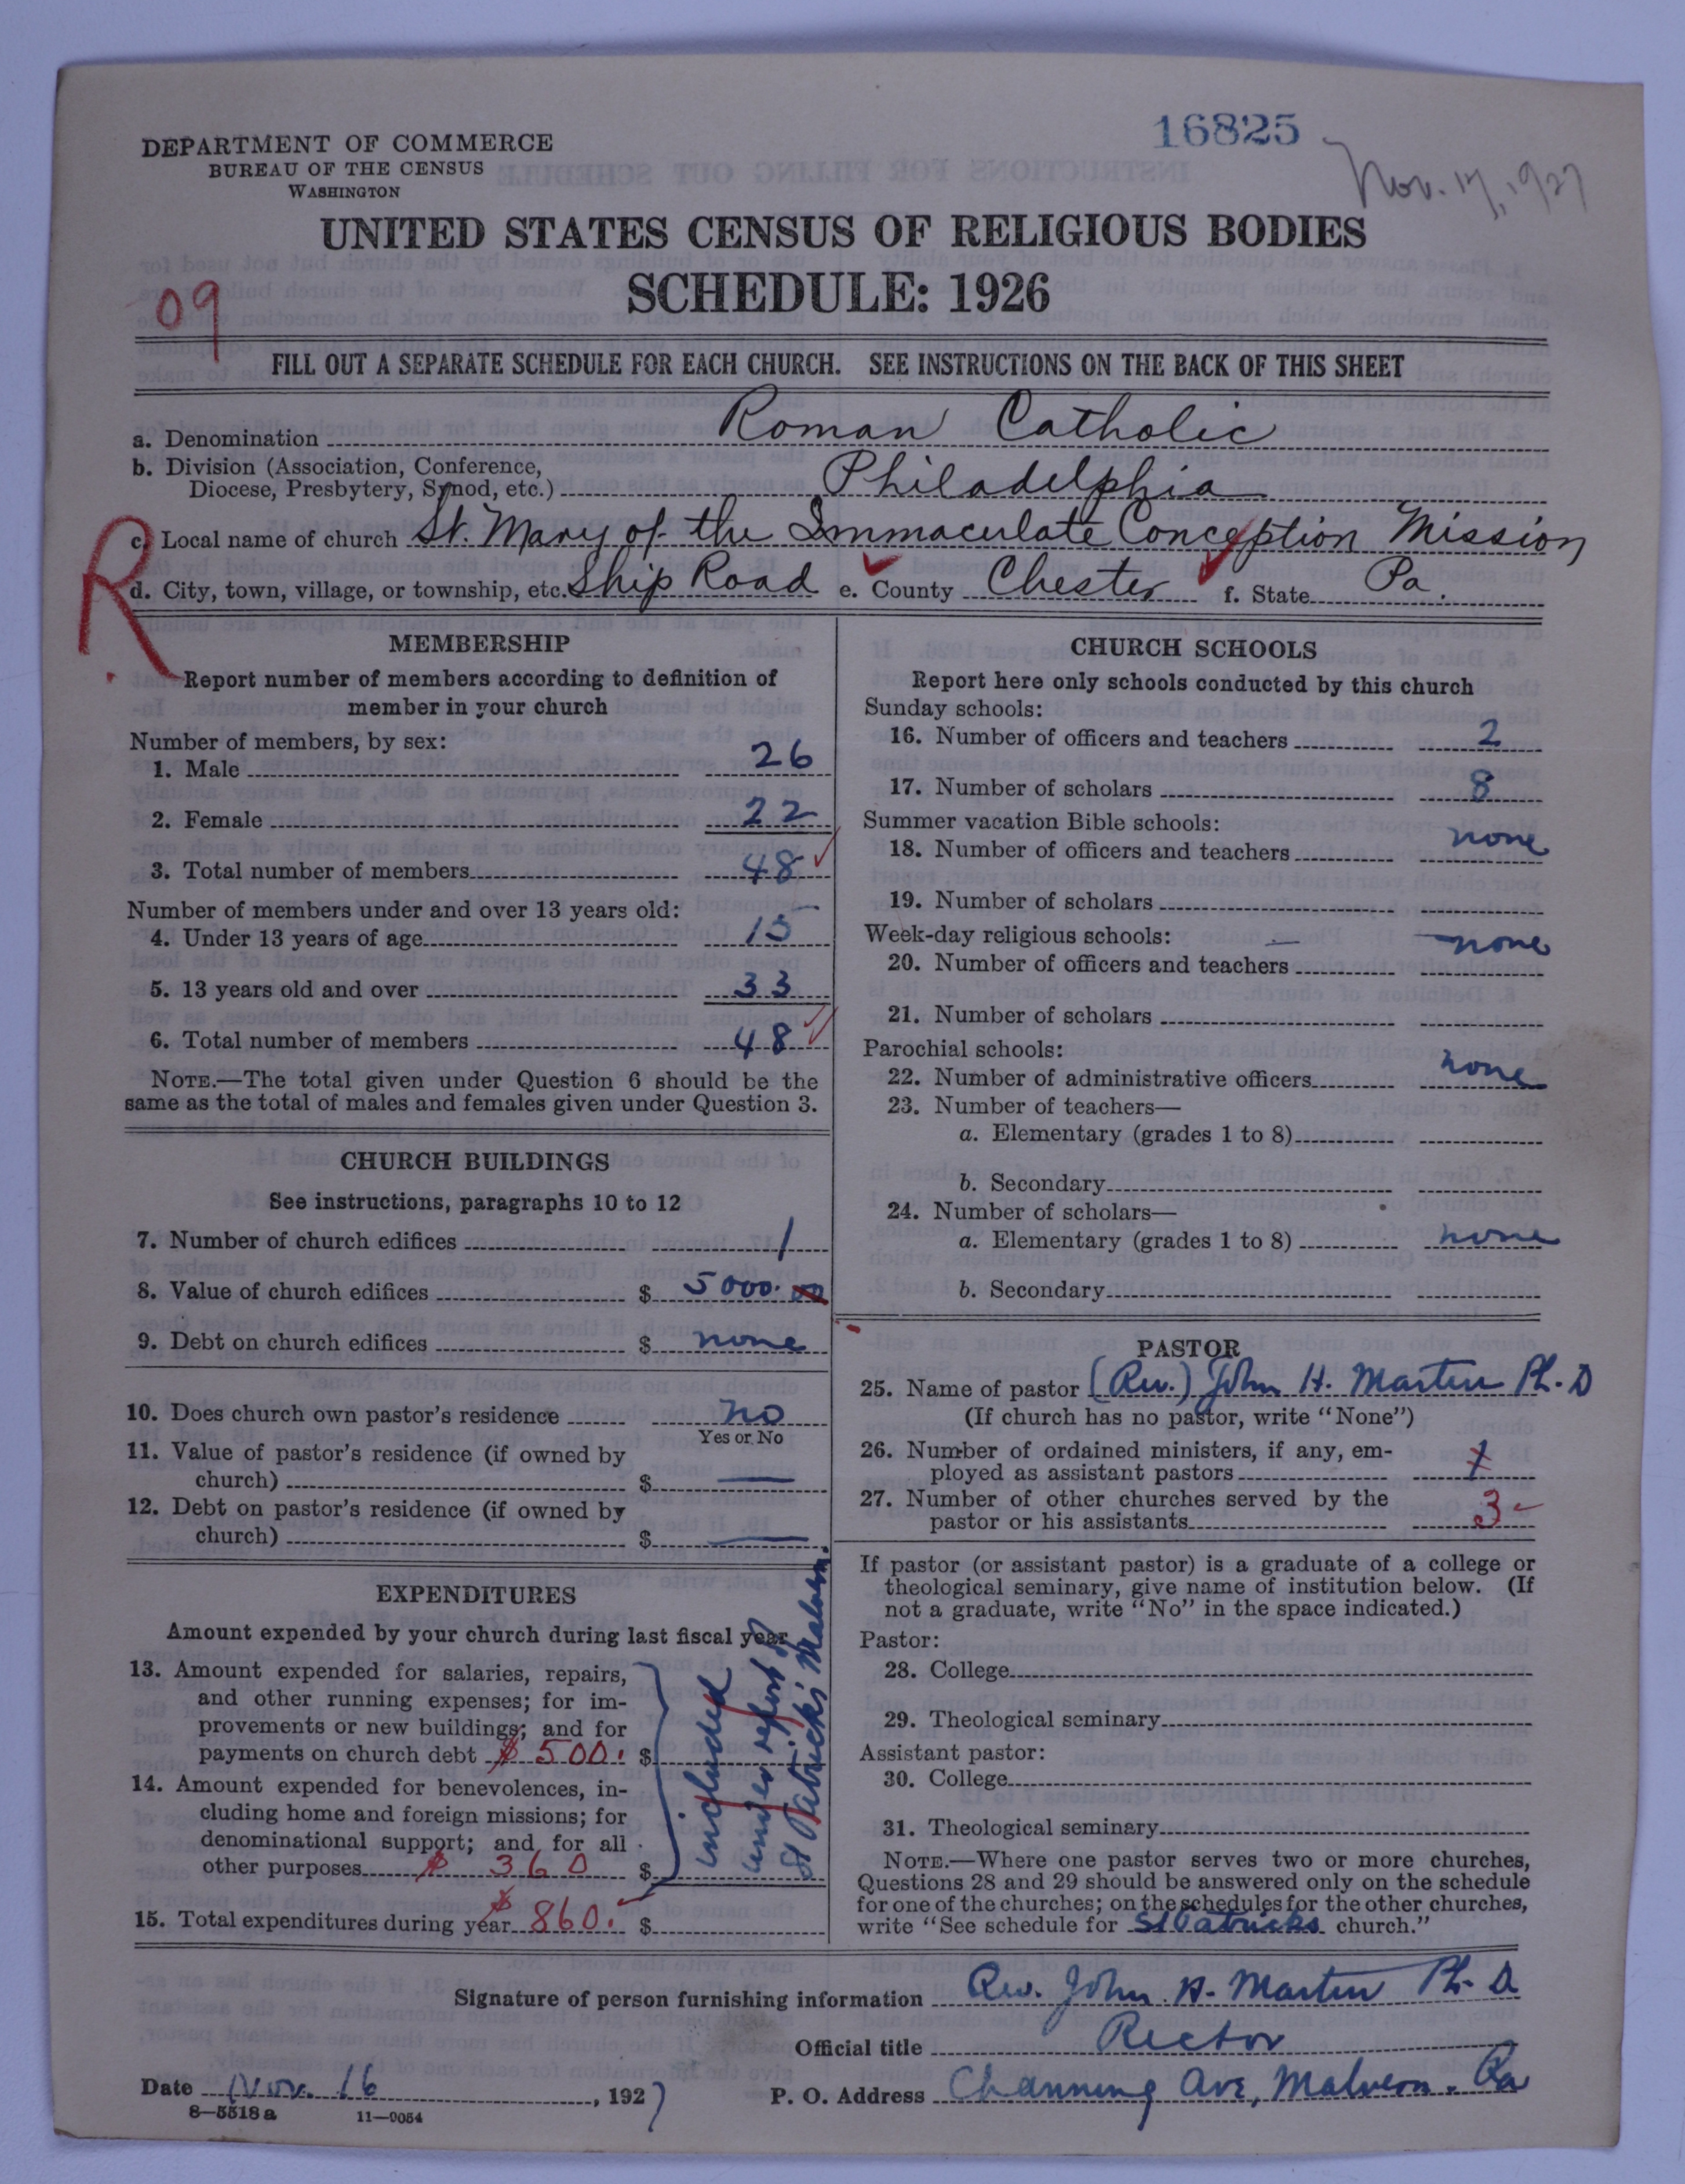 16825
Nov. 17, 1927
DEPARTMENT OF COMMERCE
BUREAU OF THE CENSUS
WASHINGTON
UNITED STATES CENSUS OF RELIGIOUS BODIES
SCHEDULE: 1926
09
FILL OUT A SEPARATE SCHEDULE FOR EACH CHURCH. SEE INSTRUCTIONS ON THE BACK OF THIS SHEET
a. Denomination Roman Catholic
b. Division (Association, Conference,
Diocese, Presbytery, Synod, etc.) Philadelphia
R
c. Local name of church St. Mary of the Immaculate Conception Mission
d. City, town, village, or township, etc. Ship Road e. County Chester f. State Pa.
MEMBERSHIP
Report number of members according to definition of
member in your church
Number of members, by sex:
1. Male 26
2. Female 22
3. Total number of members 48
Number of members under and over 13 years old:
4. Under 13 years of age 15
5. 13 years old and over 33
6. Total number of members 48
NOTE.—The total given under Question 6 should be the
same as the total of males and females given under Question 3.
CHURCH BUILDINGS
See instructions, paragraphs 10 to 12
7. Number of church edifices 1
8. Value of church edifices $ 5000.00
9. Debt on church edifices $ none
10. Does church own pastor's residence no
Yes or No
11. Value of pastor's residence (if owned by
church) $ —
12. Debt on pastor's residence (if owned by
church) $ —
EXPENDITURES
Amount expended by your church during last fiscal year
13. Amount expended for salaries, repairs,
and other running expenses; for im-
provements or new buildings; and for
payments on church debt $ 500. $
14. Amount expended for benevolences, in-
cluding home and foreign missions; for
denominational support; and for all
other purposes $ 360 $
15. Total expenditures during year $ 860. $
included
under report of
St Patrick's Malvern.
CHURCH SCHOOLS
Report here only schools conducted by this church
Sunday schools:
16. Number of officers and teachers 2
17. Number of scholars 8
Summer vacation Bible schools:
18. Number of officers and teachers none
19. Number of scholars
Week-day religious schools: — none
20. Number of officers and teachers
21. Number of scholars
Parochial schools:
22. Number of administrative officers none
23. Number of teachers—
a. Elementary (grades 1 to 8)
b. Secondary
24. Number of scholars—
a. Elementary (grades 1 to 8) none
b. Secondary
PASTOR
25. Name of pastor (Rev.) John H. Martin Ph. D
(If church has no pastor, write "None")
26. Number of ordained ministers, if any, em-
ployed as assistant pastors 1
27. Number of other churches served by the
pastor or his assistants 3
If pastor (or assistant pastor) is a graduate of a college or
theological seminary, give name of institution below. (If
not a graduate, write "No" in the space indicated.)
Pastor:
28. College
29. Theological seminary
Assistant pastor:
30. College
31. Theological seminary
NOTE.—Where one pastor serves two or more churches,
Questions 28 and 29 should be answered only on the schedule
for one of the churches; on the schedules for the other churches,
write "See schedule for St Patricks church."
Signature of person furnishing information Rev. John H. Martin Ph. D
Official title Rector
Date Nov. 16, 1927 P. O. Address Channing Ave, Malvern. Pa
8—5518 a 11—9054